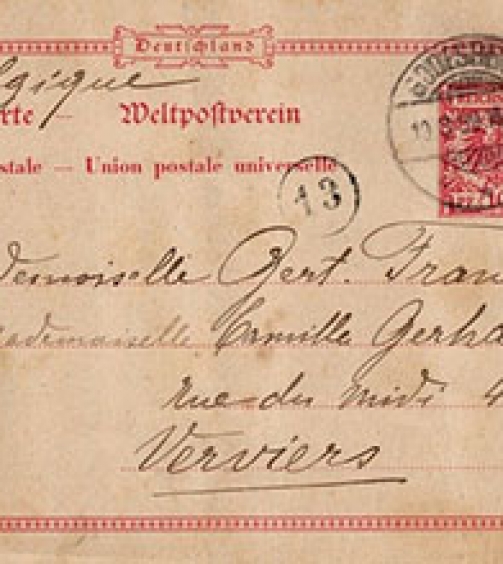 Deutschland
lgique
rte — Weltpostverein
stale — Union postale universelle
13
demoiselle Gert. Fran
ademoiselle Camille Gerha
rue du Midi 4
Verviers